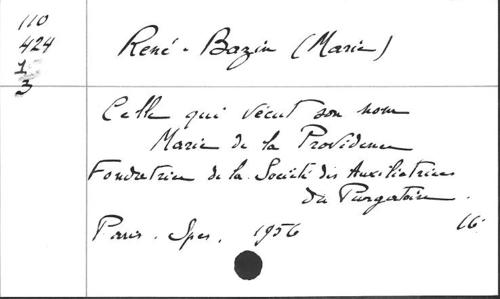 110
424
1
3
René-Bazin (Marie)
Celle qui vécut son nom
Marie de la Providence
Fondatrice de la Société des Auxiliatrices
du Purgatoire.
Paris. Spes. 1956 16